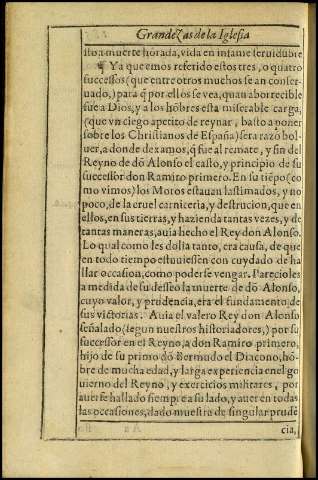 Grandezas de la Iglesia
sto a muerte hõrada, vida en infame seruidũbre
¶ Ya que emos referido estos tres, o quatro
sucessos (que entre otros muchos se an conser-
uado,) para q̃ por ellos se vea, quan aborrecible
fue a Dios, y a los hõbres esta miserable carga,
(que vn ciego apetito de reynar, basto a poner
sobre los Christianos de España) sera razõ bol-
uer, a donde dexamos, q̃ fue al remate, y fin del
Reyno de dõ Alonso el casto, y principio de su
successor don Ramiro primero. En su tiẽpo (co
mo vimos) los Moros estauan lastimados, y no
poco, de la cruel carniceria, y destrucion, que en
ellos, en sus tierras, y hazienda tantas vezes, y de
tantas maneras, auia hecho el Rey don Alonso.
Lo qual como les dolia tanto, era causa, de que
en todo tiempo estuuiessen con cuydado de ha
llar occasion, como poderse vengar. Parecioles
a medida de su desseo la muerte de dõ Alonso,
cuyo valor, y prudencia, era el fundamento de
sus victorias. Auia el valero Rey don Alonso
señalado (segun nuestros historiadores,) por su
successor en el Reyno, a don Ramiro primero,
hijo de su primo dõ Bermudo el Diacono, hõ-
bre de mucha edad, y larga experiencia en el go
uierno del Reyno, y exercicios militares, por
auerse hallado siempre a su lado, y auer en todas
las occasiones, dado muestra de singular prudẽ
cia,